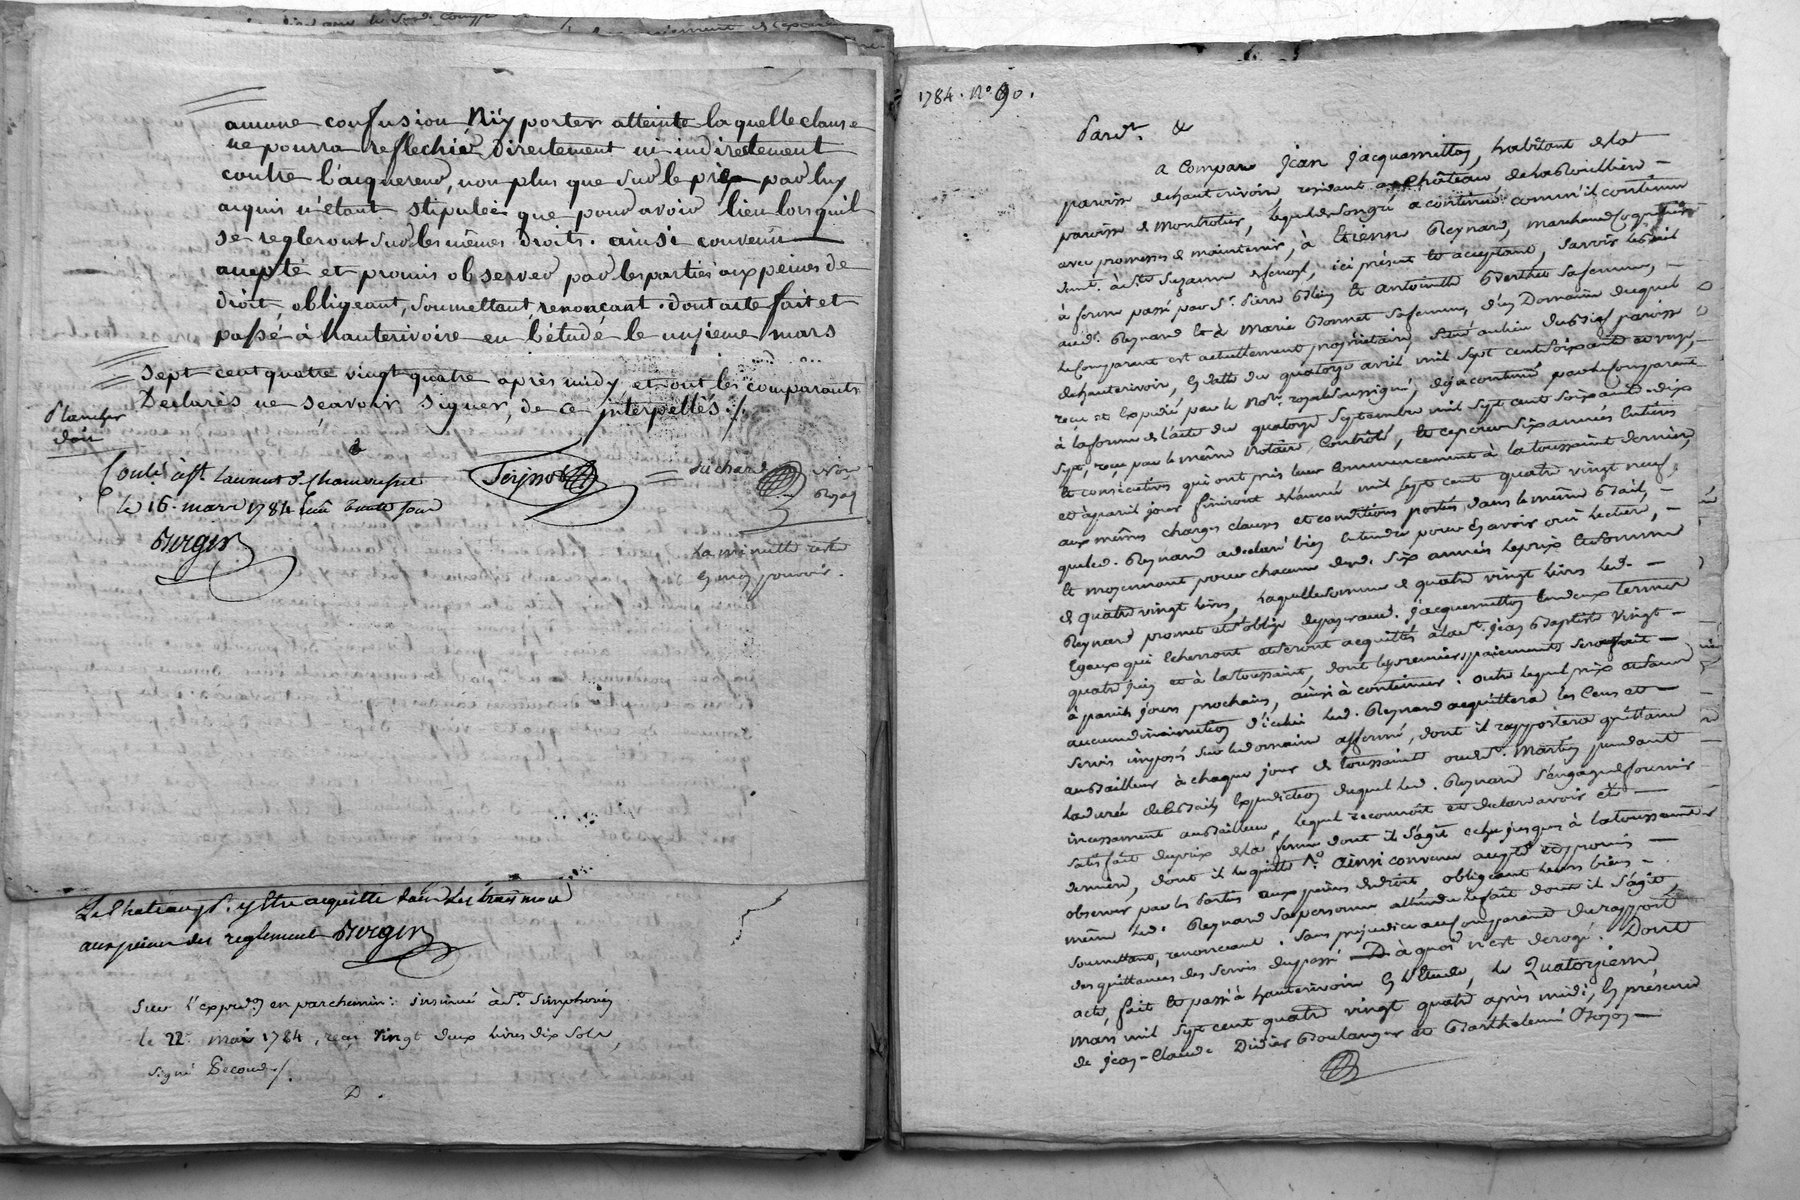 aucune confusion N'iy porter atteinte laquelle clause
ne pourra reflechir directement ni indirectement
contre l'acquereur, non plus que sur le prix par luy
acquis n'etant stipulée que pour avoir lieu lorsqu'il
se regleront sur les mêmes droits. ainsi convenu
accepté et promis observer par les parties aux peines de
droit, obligeant, soumettant, renonçant. dont acte fait et
passé à hauterivoire en l'étude le unzieme mars
sept cent quatre vingt quatre après midy et ont les comparants
Declarés ne sçavoir signer, de ce interpellés ./.
Plancher
doit
Conlé à St Laurent d. Chamousset
le 16. mars 1784
Berger
La minutte reste
en mon pouvoir.
aux peines des reglement Berger
Sur l'expedon en parchemin: insinué à St. Simphorien
le 22e mai 1784, reçu vingt deux livres dix sols,
signé Second ./.
D.
1784. No. 90.
Pardt. &
a Comparu Jean Jacquemetton, habitant de la
paroisse de hauterivoire residant au Château de la
paroisse de Montrotier, lequel de son gré a continué comm'il continue
avec promesses de maintenir, à Etienne Reynard, marchand
demt. à Ste Suzanne, ici présent et acceptant, savoir le bail
à ferme passé par Sr. Pierre et Antoinette Berthet sa femme,
aud. Reynard et à Marie Bonnet sa femme, d'un Domaine duquel
le Comparant est actuellement propriétaire situé au lieu paroisse
de hauterivoire, en datte du quatorze avril mil sept cent soixante et onze,
recu et Expedié par le Nore. royal soussigné, deja continué par le Comparant
à la forme de l'acte du quatorze Septembre mil sept cent soixante dix
sept, recu par le même Notaire, Contrôlé, et ce pour six années Entières
et consécutives qui ont pris leur Commencement à la toussaint derniere,
et à pareil jour finiront de l'année mil sept cent quatre vingt neuf,
aux mêmes charges clauses et conditions portées dans le même Bail,
que led. Reynard a declaré bien Entendre pour En avoir ouï lecture,
et moyennant pour chacune desd. six années le prix et somme
de quatre vingt livres, laquelle somme de quatre vingt livres led.
Reynard promet et s'oblige de payer aud. Jacquemetton en deux termes
Egaux qui Echerront et seront acquittés à la St. Jean Baptiste vingt
quatre juin et à la toussaint, dont les premiers paiements sera fait
à pareils jours prochains, ainsi à continuer: outre lequel prix et sans
aucune diminution d'icelui led. Reynard acquittera les Cens et
Servis imposés sur le domaine affermé, dont il rapportera quittance
au Bailleur à chaque jour de toussaints ou de St. Martin pendant
la durée de ce Bail Expedition duquel led. Reynard s'engage de fournir
incessament au Bailleur, lequel reconnoit et declare avoir été
satisfait du prix de la ferme dont il s'agit echu jusques à la toussaints
derniere, dont il le quitte. Ainsi convenu accepté et promis
observer par les Parties aux peines de droit, obligeant leurs biens
même led. Reynard sa personne attendu le fait dont il s'agit,
soumettant, renonceant. sans préjudice au Comparant du rapport
des quittances des servis du passé à quoi n'est derogé. Dont
acte, fait et passé à hauterivoire En l'Etude, le Quatorzieme
mars mil sept cent quatre vingt quatre après midi, En présence
de Jean-Claude Didier Boulanger et Barthelemi